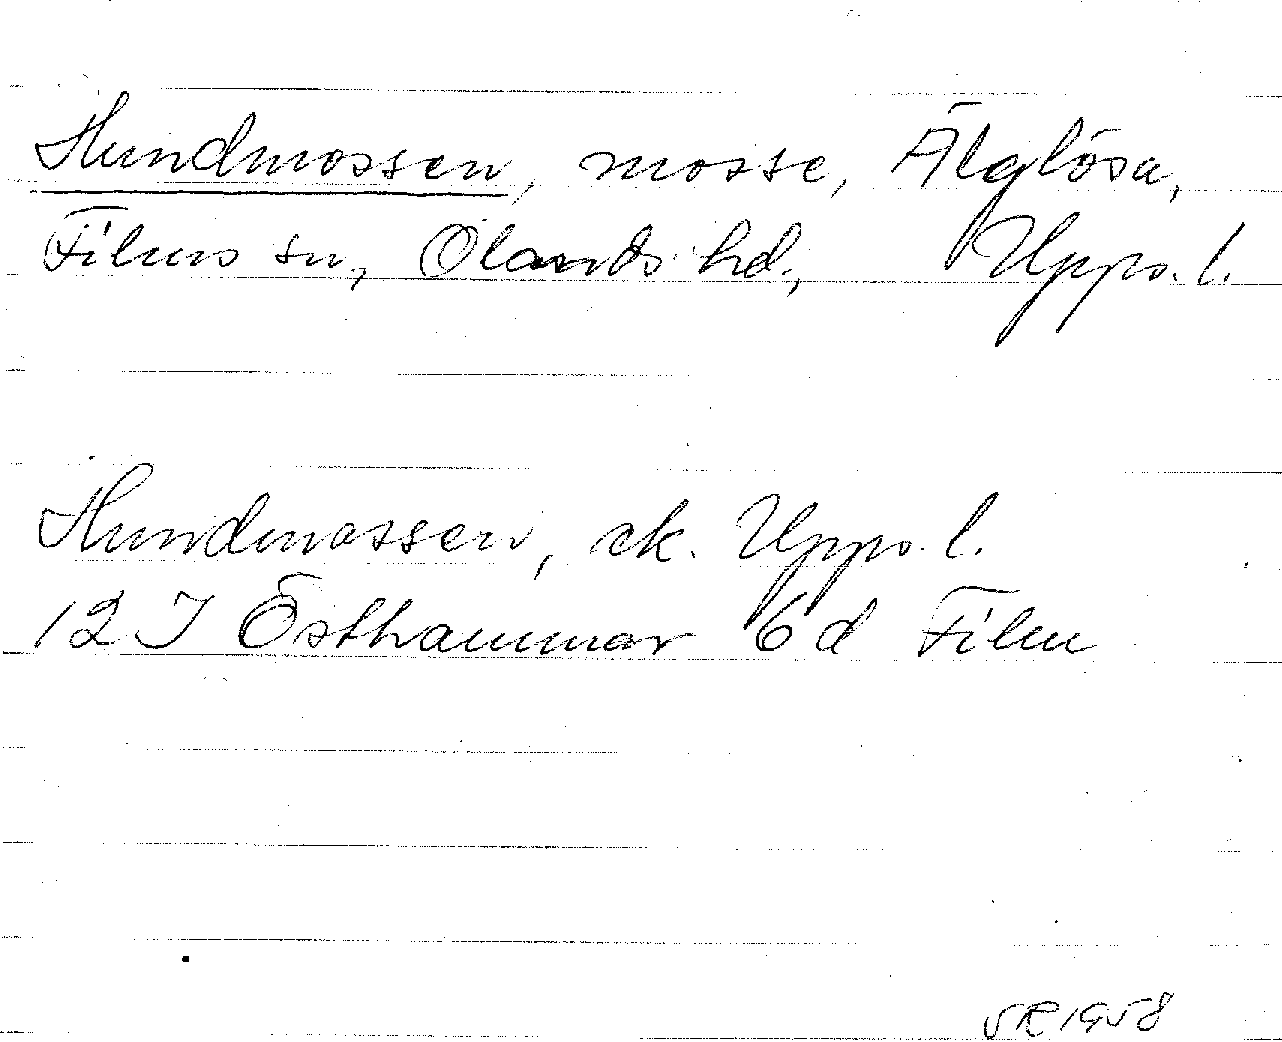 Hundmossen, mosse, Älglösa,
Films sn, Olands hd, Upps. l.
Hundmossen, ek. Upps. l.
12 I Östhammar 6 d Film
SR 1958